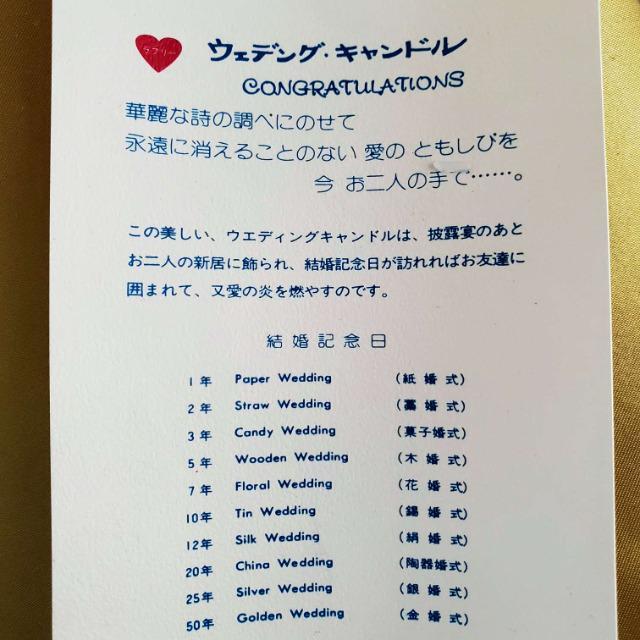 ラブリー
ウェデング・キャンドル
CONGRATULATIONS
華麗な詩の調べにのせて
永遠に消えることのない 愛の ともしびを
今 お二人の手で……。
この美しい、ウエディングキャンドルは、披露宴のあと
お二人の新居に飾られ、結婚記念日が訪れればお友達に
囲まれて、又愛の炎を燃やすのです。
結婚記念日
1年 Paper Wedding (紙婚式)
2年 Straw Wedding (藁婚式)
3年 Candy Wedding (菓子婚式)
5年 Wooden Wedding (木婚式)
7年 Floral Wedding (花婚式)
10年 Tin Wedding (錫婚式)
12年 Silk Wedding (絹婚式)
20年 China Wedding (陶器婚式)
25年 Silver Wedding (銀婚式)
50年 Golden Wedding (金婚式)